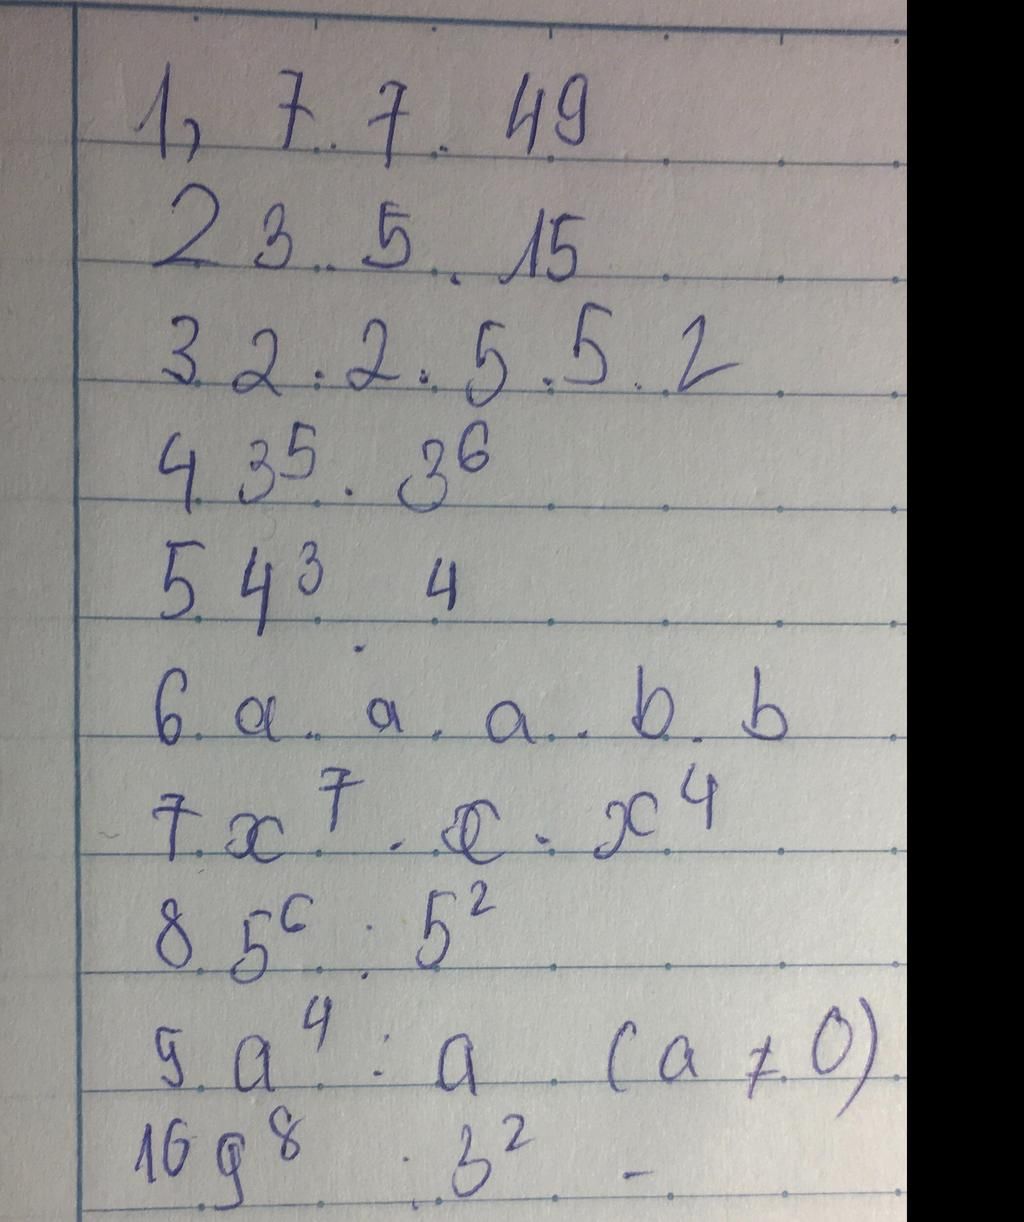 1, 7 . 7 . 49
2 3 . 5 . 15
3 2 . 2 . 5 . 5 . 2
4 3⁵ . 3⁶
5 4³ . 4
6 a . a . a . b . b
7 x⁷ . x . x⁴
8 5⁶ : 5²
9 a⁴ : a (a ≠ 0)
10 9⁸ : 3² -